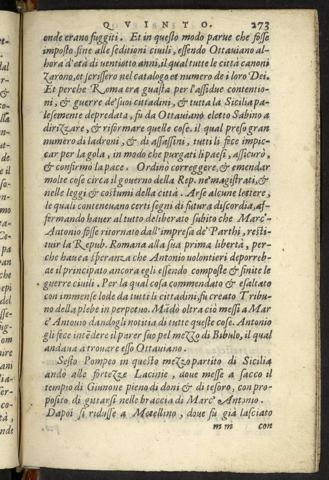 QVINTO. 273
onde erano fuggiti. Et in questo modo parue che fosse
imposto fine alle seditioni ciuili, essendo Ottauiano al-
hora d'età di uentiotto anni, il qual tutte le città canoni
zarono, et scrissero nel catalogo et numero de i loro Dei.
Et perche Roma era guasta per l'assidue contentio-
ni, & guerre de' suoi cittadini, & tutta la Sicilia pa-
lesemente depredata, fu da Ottauiano eletto Sabino a
dirizzare, & riformare quelle cose. il qual preso gran
numero di ladroni, & di assassini, tutti li fece impic-
car per la gola, in modo che purgati li paesi, assicurò,
& confermò la pace. Ordinò correggere, & emendar
molte cose circa il gouerno della Rep. ne' magistrati, &
nelle leggi & costumi della città. Arse alcune lettere,
le quali conteneuano certi sogni di futura discordia, af-
fermando hauer al tutto deliberato subito che Marc'
Antonio fosse ritornato dall'impresa de' Parthi, resti-
tuir la Repub. Romana alla sua prima libertà, per-
che haueua speranza che Antonio uolontieri deporreb-
be il principato ancora egli essendo composte & finite le
guerre ciuili. Per la qual cosa commendato & esaltato
con immense lode da tutti li cittadini, fu creato Tribu-
no della plebe in perpetuo. Mādò oltra ciò messi a Mar
c' Antonio dandogli notitia di tutte queste cose. Antonio
gli fece intēdere il parer suo pel mezzo di Bibulo, il qual
andaua a trouare esso Ottauiano.
Sesto Pompeo in questo mezzo partito di Sicilia
andò alle fortezze Lacinie, doue messe a sacco il
tempio di Giunone pieno di doni & di tesoro, con pro-
posito di gittarsi nelle braccia di Marc' Antonio.
Dapoi si ridusse a Metellino, doue fu già lasciato
mm con